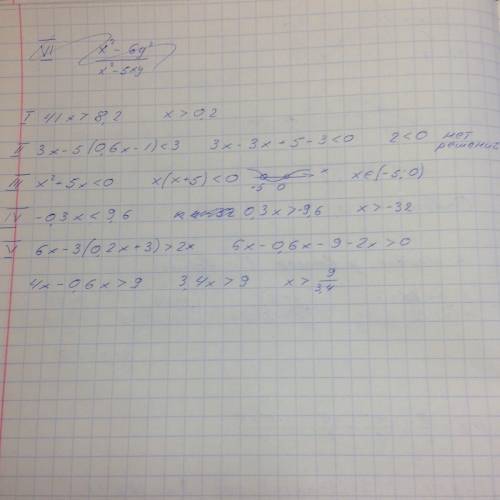 VI x² - 6y² / x² - 5xy
I 41x > 8,2 x > 0,2
II 3x - 5(0,6x - 1) < 3 3x - 3x + 5 - 3 < 0 2 < 0 нет
решений
III x² + 5x < 0 x(x + 5) < 0 -5 0 x x ∈ (-5; 0)
IV -0,3x < 9,6 0,3x > -9,6 x > -32
V 6x - 3(0,2x + 3) > 2x 6x - 0,6x - 9 - 2x > 0
4x - 0,6x > 9 3,4x > 9 x > 9/3,4